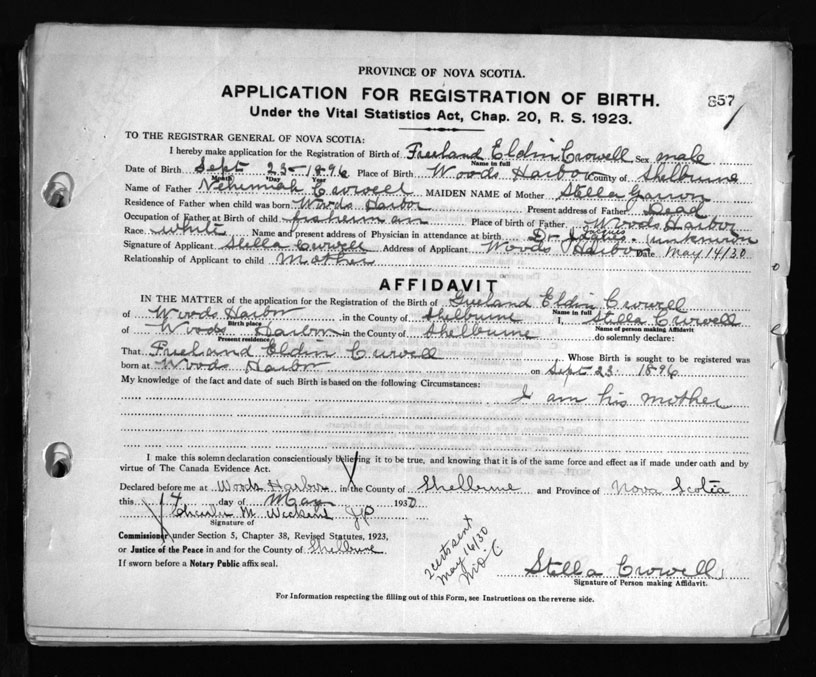 PROVINCE OF NOVA SCOTIA.
857
APPLICATION FOR REGISTRATION OF BIRTH.
Under the Vital Statistics Act, Chap. 20, R. S. 1923.
TO THE REGISTRAR GENERAL OF NOVA SCOTIA:
I hereby make application for the Registration of Birth of Freeland Eldin Crowell Sex male
Name in full
Date of Birth Sept 23- 1896 Place of Birth Woods Harbor County of Shelburne
Month Day Year
Name of Father Nehemiah Crowell MAIDEN NAME of Mother Stella
Residence of Father when child was born Woods Harbor Present address of Father Dead
Occupation of Father at Birth of child fisherman Place of birth of Father Woods Harbor
Race white Name and present address of Physician in attendance at birth Dr unknown
Signature of Applicant Stella Crowell Address of Applicant Woods Harbor Date May 14/30
Relationship of Applicant to child Mother
AFFIDAVIT
IN THE MATTER of the application for the Registration of the Birth of Freeland Eldin Crowell
Name in full
of Woods Harbor in the County of Shelburne I, Stella Crowell
Birth place Name of person making Affidavit
of Woods Harbor in the County of Shelburne do solemnly declare:
Present residence
That Freeland Eldin Crowell Whose Birth is sought to be registered was
born at Woods Harbor on Sept 23 1896
My knowledge of the fact and date of such Birth is based on the following Circumstances:
I am his mother
I make this solemn declaration conscientiously believing it to be true, and knowing that it is of the same force and effect as if made under oath and by
virtue of The Canada Evidence Act.
Declared before me at Woods Harbor in the County of Shelburne and Province of Nova Scotia
this 14 day of May 1930
M JP
Signature of
Commissioner under Section 5, Chapter 38, Revised Statutes, 1923,
or Justice of the Peace in and for the County of Shelburne
If sworn before a Notary Public affix seal.
2 certs sent
May 16/30
Stella Crowell
Signature of Person making Affidavit.
For Information respecting the filling out of this Form, see Instructions on the reverse side.